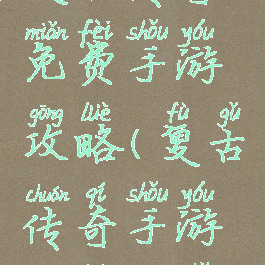 miǎn fèi shǒu yóu
免费手游
gōng lüè fù gǔ
攻略(复古
chuán qí shǒu yóu
传奇手游